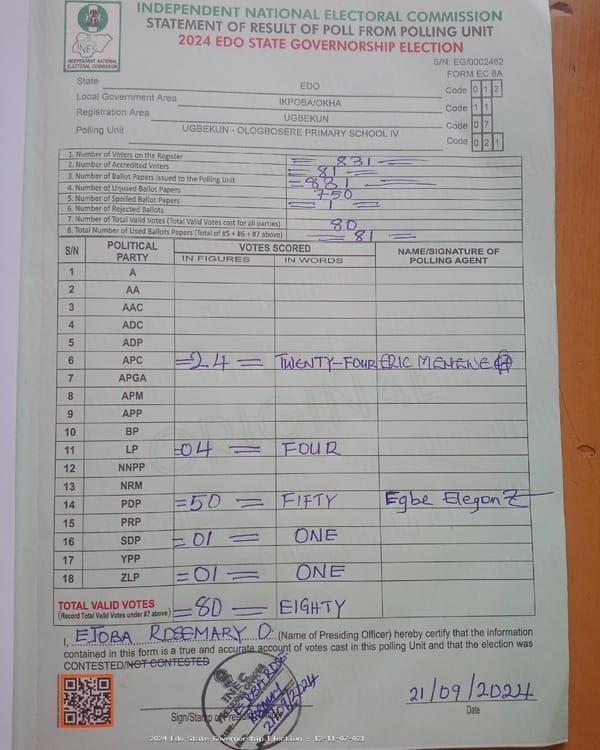 INDEPENDENT NATIONAL ELECTORAL COMMISSION
STATEMENT OF RESULT OF POLL FROM POLLING UNIT
2024 EDO STATE GOVERNORSHIP ELECTION
INEC
INDEPENDENT NATIONAL
ELECTORAL COMMISSION
S/N: EG/0002462
FORM EC 8A
State EDO Code 0 1 2
Local Government Area IKPOBA/OKHA Code 1 1
Registration Area UGBEKUN Code 0 7
Polling Unit UGBEKUN - OLOGBOSERE PRIMARY SCHOOL IV Code 0 2 1
1. Number of Voters on the Register = 831 =
2. Number of Accredited Voters = 81 =
3. Number of Ballot Papers issued to the Polling Unit = 831 =
4. Number of Unused Ballot Papers 750
5. Number of Spoiled Ballot Papers
6. Number of Rejected Ballots = 1 =
7. Number of Total Valid Votes (Total Valid Votes cast for all parties) 80
8. Total Number of Used Ballots Papers (Total of #5 + #6 + #7 above) = 81 =
S/N POLITICAL PARTY VOTES SCORED NAME/SIGNATURE OF POLLING AGENT
IN FIGURES IN WORDS
1 A
2 AA
3 AAC
4 ADC
5 ADP
6 APC =24= TWENTY-FOUR ERIC
7 APGA
8 APM
9 APP
10 BP
11 LP =04= FOUR
12 NNPP
13 NRM
14 PDP =50= FIFTY Egbe Elegon
15 PRP
16 SDP =01= ONE
17 YPP
18 ZLP =01= ONE
TOTAL VALID VOTES =80= EIGHTY
(Record Total Valid Votes under #7 above)
I, EJOBA ROSEMARY O. (Name of Presiding Officer) hereby certify that the information
contained in this form is a true and accurate account of votes cast in this polling Unit and that the election was
CONTESTED/NOT CONTESTED
INEC
21/09/2024
21/09/2024
Sign/Stamp of Presiding Officer
Date
2024 Edo State Governorship Election : 12-11-07-021